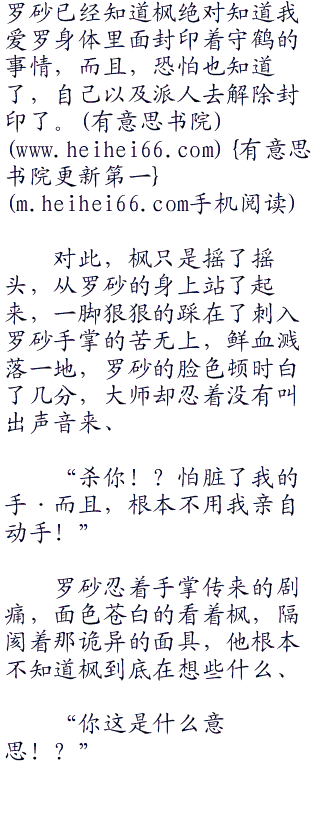 罗砂已经知道枫绝对知道我
爱罗身体里面封印着守鹤的
事情，而且，恐怕也知道
了，自己以及派人去解除封
印了。(有意思书院)
(www.heihei66.com) {有意思
书院更新第一}
(m.heihei66.com手机阅读)
对此，枫只是摇了摇
头，从罗砂的身上站了起
来，一脚狠狠的踩在了刺入
罗砂手掌的苦无上，鲜血溅
落一地，罗砂的脸色顿时白
了几分，大师却忍着没有叫
出声音来、
“杀你！？怕脏了我的
手·而且，根本不用我亲自
动手！”
罗砂忍着手掌传来的剧
痛，面色苍白的看着枫，隔
阂着那诡异的面具，他根本
不知道枫到底在想些什么、
“你这是什么意
思！？”